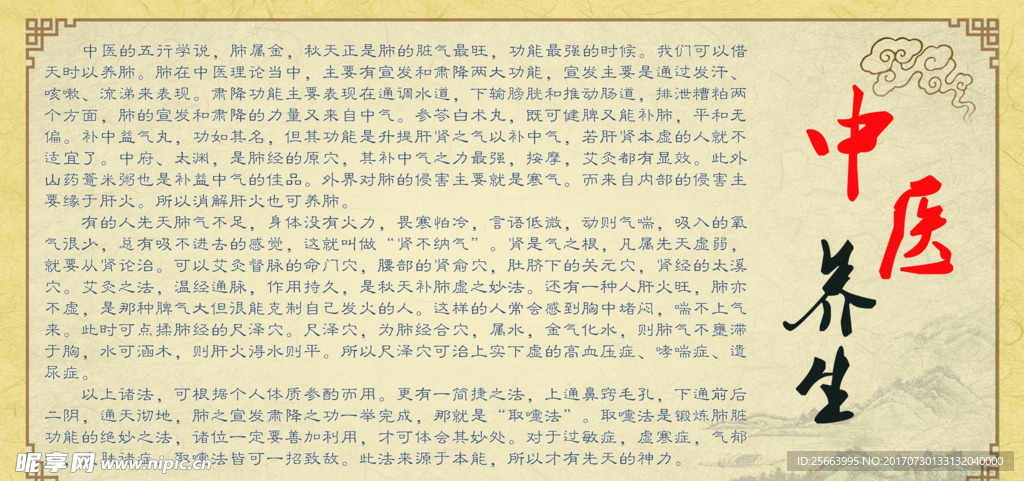 中医的五行学说，肺属金，秋天正是肺的脏气最旺，功能最强的时候。我们可以借
天时以养肺。肺在中医理论当中，主要有宣发和肃降两大功能，宣发主要是通过发汗、
咳嗽、流涕来表现。肃降功能主要表现在通调水道，下输膀胱和推动肠道，排泄糟粕两
个方面，肺的宣发和肃降的力量又来自中气。参苓白术丸，既可健脾又能补肺，平和无
偏。补中益气丸，功如其名，但其功能是升提肝肾之气以补中气，若肝肾本虚的人就不
适宜了。中府、太渊，是肺经的原穴，其补中气之力最强，按摩，艾灸都有显效。此外
山药薏米粥也是补益中气的佳品。外界对肺的侵害主要就是寒气。而来自内部的侵害主
要缘于肝火。所以消解肝火也可养肺。
有的人先天肺气不足，身体没有火力，畏寒怕冷，言语低微，动则气喘，吸入的氧
气很少，总有吸不进去的感觉，这就叫做“肾不纳气”。肾是气之根，凡属先天虚弱，
就要从肾论治。可以艾灸督脉的命门穴，腰部的肾俞穴，肚脐下的关元穴，肾经的太溪
穴。艾灸之法，温经通脉，作用持久，是秋天补肺虚之妙法。还有一种人肝火旺，肺亦
不虚，是那种脾气大但很能克制自己发火的人。这样的人常会感到胸中堵闷，喘不上气
来。此时可点揉肺经的尺泽穴。尺泽穴，为肺经合穴，属水，金气化水，则肺气不壅滞
于胸，水可涵木，则肝火得水则平。所以尺泽穴可治上实下虚的高血压症、哮喘症、遗
尿症。
以上诸法，可根据个人体质参酌而用。更有一简捷之法，上通鼻窍毛孔，下通前后
二阴，通天彻地，肺之宣发肃降之功一举完成，那就是“取嚏法”。取嚏法是锻炼肺脏
功能的绝妙之法，诸位一定要善加利用，才可体会其妙处。对于过敏症，虚寒症，气郁
肺诸症，取嚏法皆可一招致敌。此法来源于本能，所以才有先天的神力。
中医
养生
昵享网 www.nipic.cn
ID:25663995 NO:20170730133132040000